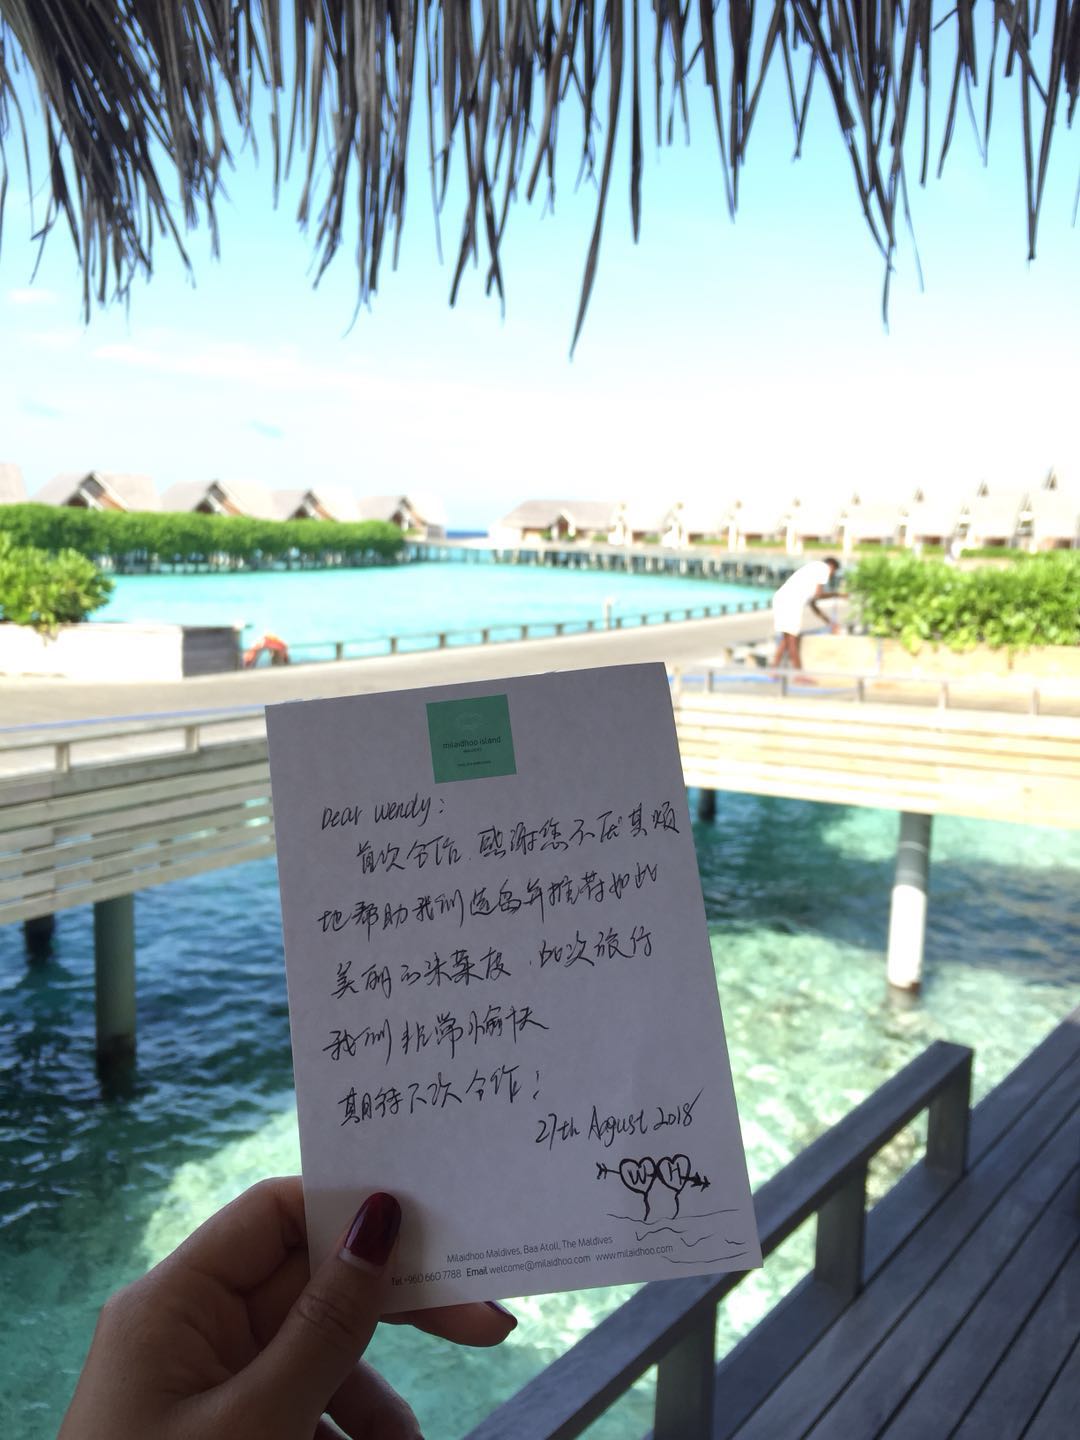 milaidhoo island
MALDIVES
Dear Wendy:
首次合作,感谢您不厌其烦
地帮助我们选岛并推荐如此
美丽的米莱度,此次旅行
我们非常愉快
期待下次合作!
27th August 2018
W H
Milaidhoo Maldives, Baa Atoll, The Maldives
Tel +960 660 7788 Email welcome@milaidhoo.com www.milaidhoo.com